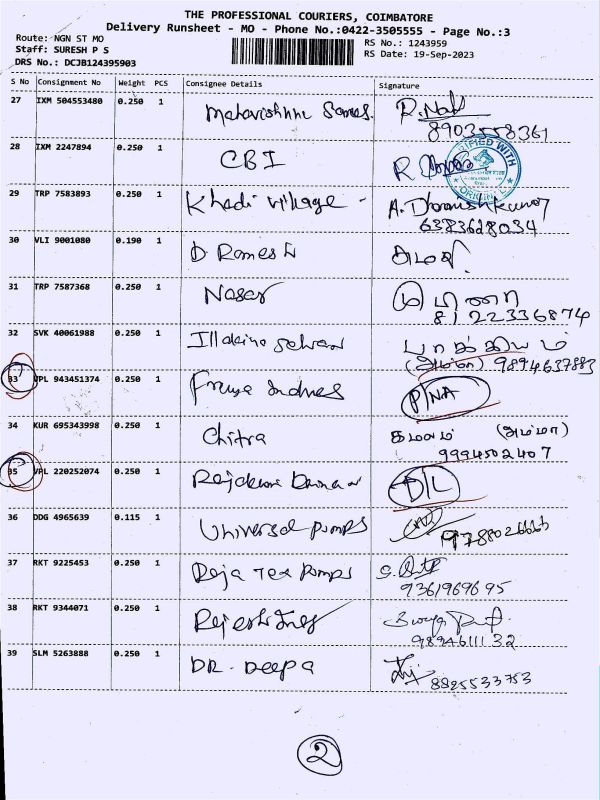 THE PROFESSIONAL COURIERS, COIMBATORE
Delivery Runsheet - MO - Phone No.:0422-3505555 - Page No.:3
Route: NGN ST MO
Staff: SURESH P S
DRS No.: DCJB124395903
RS No.: 1243959
RS Date: 19-Sep-2023
S No Consignment No Weight PCS Consignee Details Signature
27 IXM 504553480 0.250 1 R.
8903558361
28 IXM 2247894 0.250 1 CBI R
VERIFIED WITH
ORIGINAL
29 TRP 7583893 0.250 1 Khadi village - A. Dhanishkumar
6383628034
30 VLI 9001080 0.190 1 D Ramesh அமலி
31 TRP 7587368 0.250 1 Naser
8122336874
32 SVK 40061988 0.250 1 பாக்கியம்
(அம்மா) 9894637883
33 VPL 943451374 0.250 1 P/NA
34 KUR 695343998 0.250 1 Chitra கமலம் (அம்மா)
9994502407
35 VPL 220252074 0.250 1 D/L
36 DDG 4965639 0.115 1 Universal pumps
9788026666
37 RKT 9225453 0.250 1 Raja Tex Pumps
9361969695
38 RKT 9344071 0.250 1 Rajesh Surya
9894611132
39 SLM 5263888 0.250 1 DR. Deepa
8825533753
2